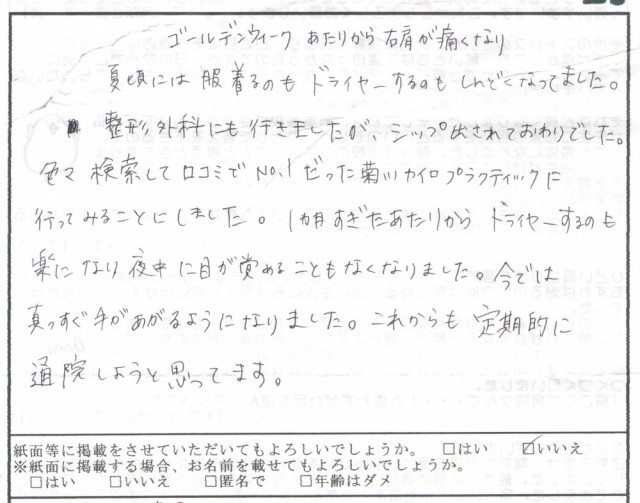 ゴールデンウィークあたりから右肩が痛くなり
夏頃には服着るのもドライヤーするのもしんどくなってました。
整形外科にも行きましたが、シップ出されておわりでした。
色々検索して口コミでNo.1だった菊川カイロプラクティックに
行ってみることにしました。1カ月すぎたあたりからドライヤーするのも
楽になり夜中に目が覚めることもなくなりました。今では
真っすぐ手があがるようになりました。これからも定期的に
通院しようと思ってます。
紙面等に掲載をさせていただいてもよろしいでしょうか。 □はい ☑いいえ
※紙面に掲載する場合、お名前を載せてもよろしいでしょうか。
□はい □いいえ □匿名で □年齢はダメ